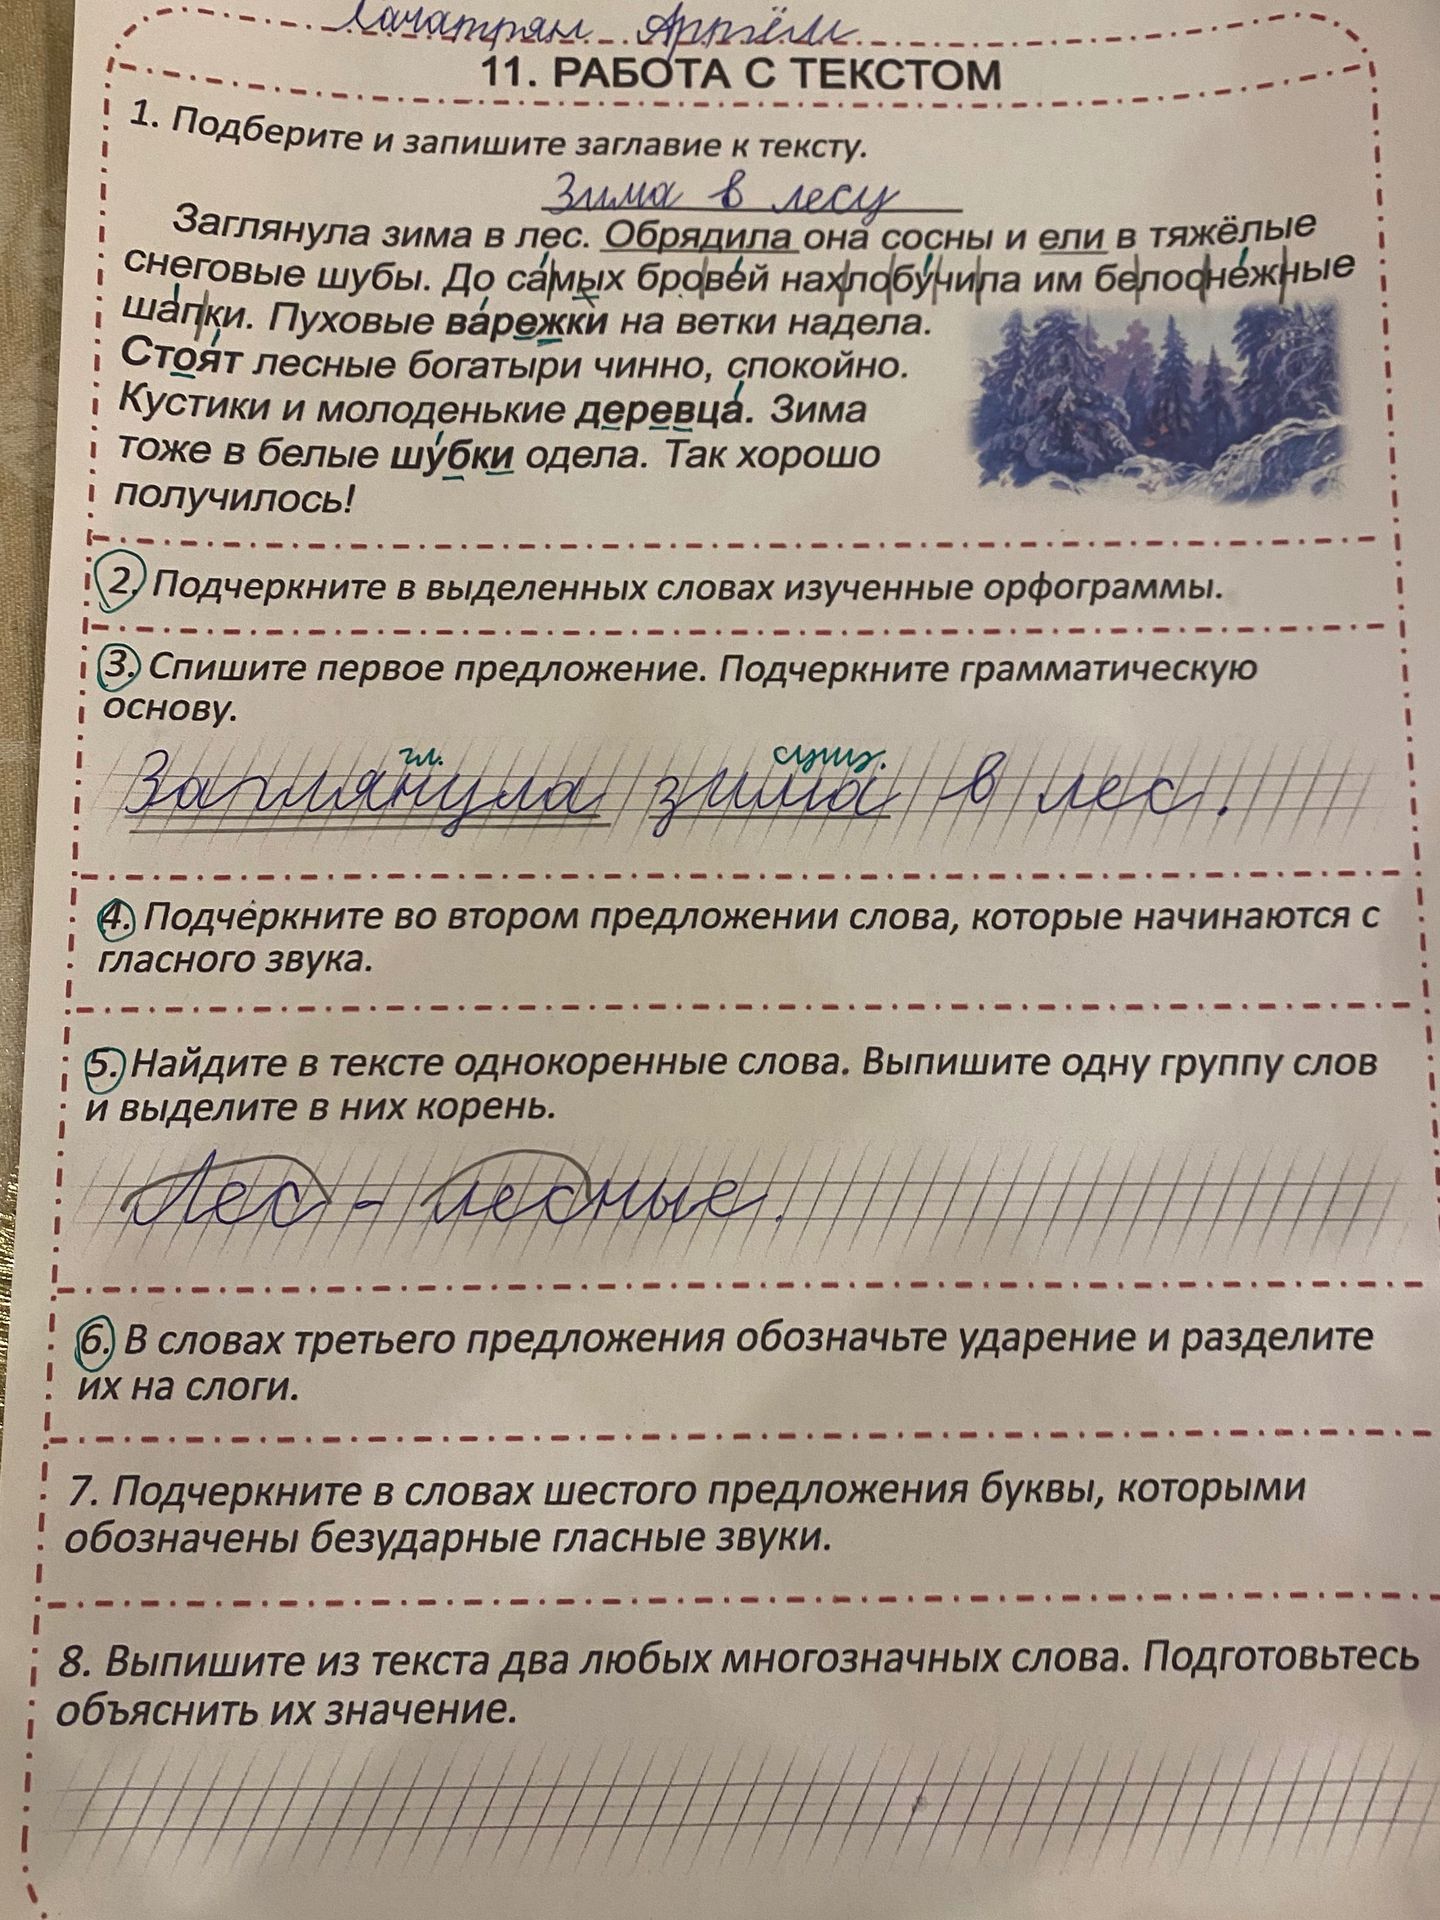 Хачатрян Артём
11. РАБОТА С ТЕКСТОМ
1. Подберите и запишите заглавие к тексту.
Зима в лесу
Заглянула зима в лес. Обрядила она сосны и ели в тяжёлые
снеговые шубы. До самых бровей нахлобучила им белоснежные
шапки. Пуховые варежки на ветки надела.
Стоят лесные богатыри чинно, спокойно.
Кустики и молоденькие деревца. Зима
тоже в белые шубки одела. Так хорошо
получилось!
2. Подчеркните в выделенных словах изученные орфограммы.
3. Спишите первое предложение. Подчеркните грамматическую
основу.
гл. сущ.
Заглянула зима в лес.
4. Подчеркните во втором предложении слова, которые начинаются с
гласного звука.
5. Найдите в тексте однокоренные слова. Выпишите одну группу слов
и выделите в них корень.
Лес - лесные.
6. В словах третьего предложения обозначьте ударение и разделите
их на слоги.
7. Подчеркните в словах шестого предложения буквы, которыми
обозначены безударные гласные звуки.
8. Выпишите из текста два любых многозначных слова. Подготовьтесь
объяснить их значение.